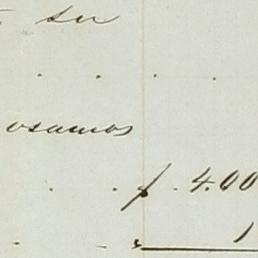 su
osamos
f. 4.00
1